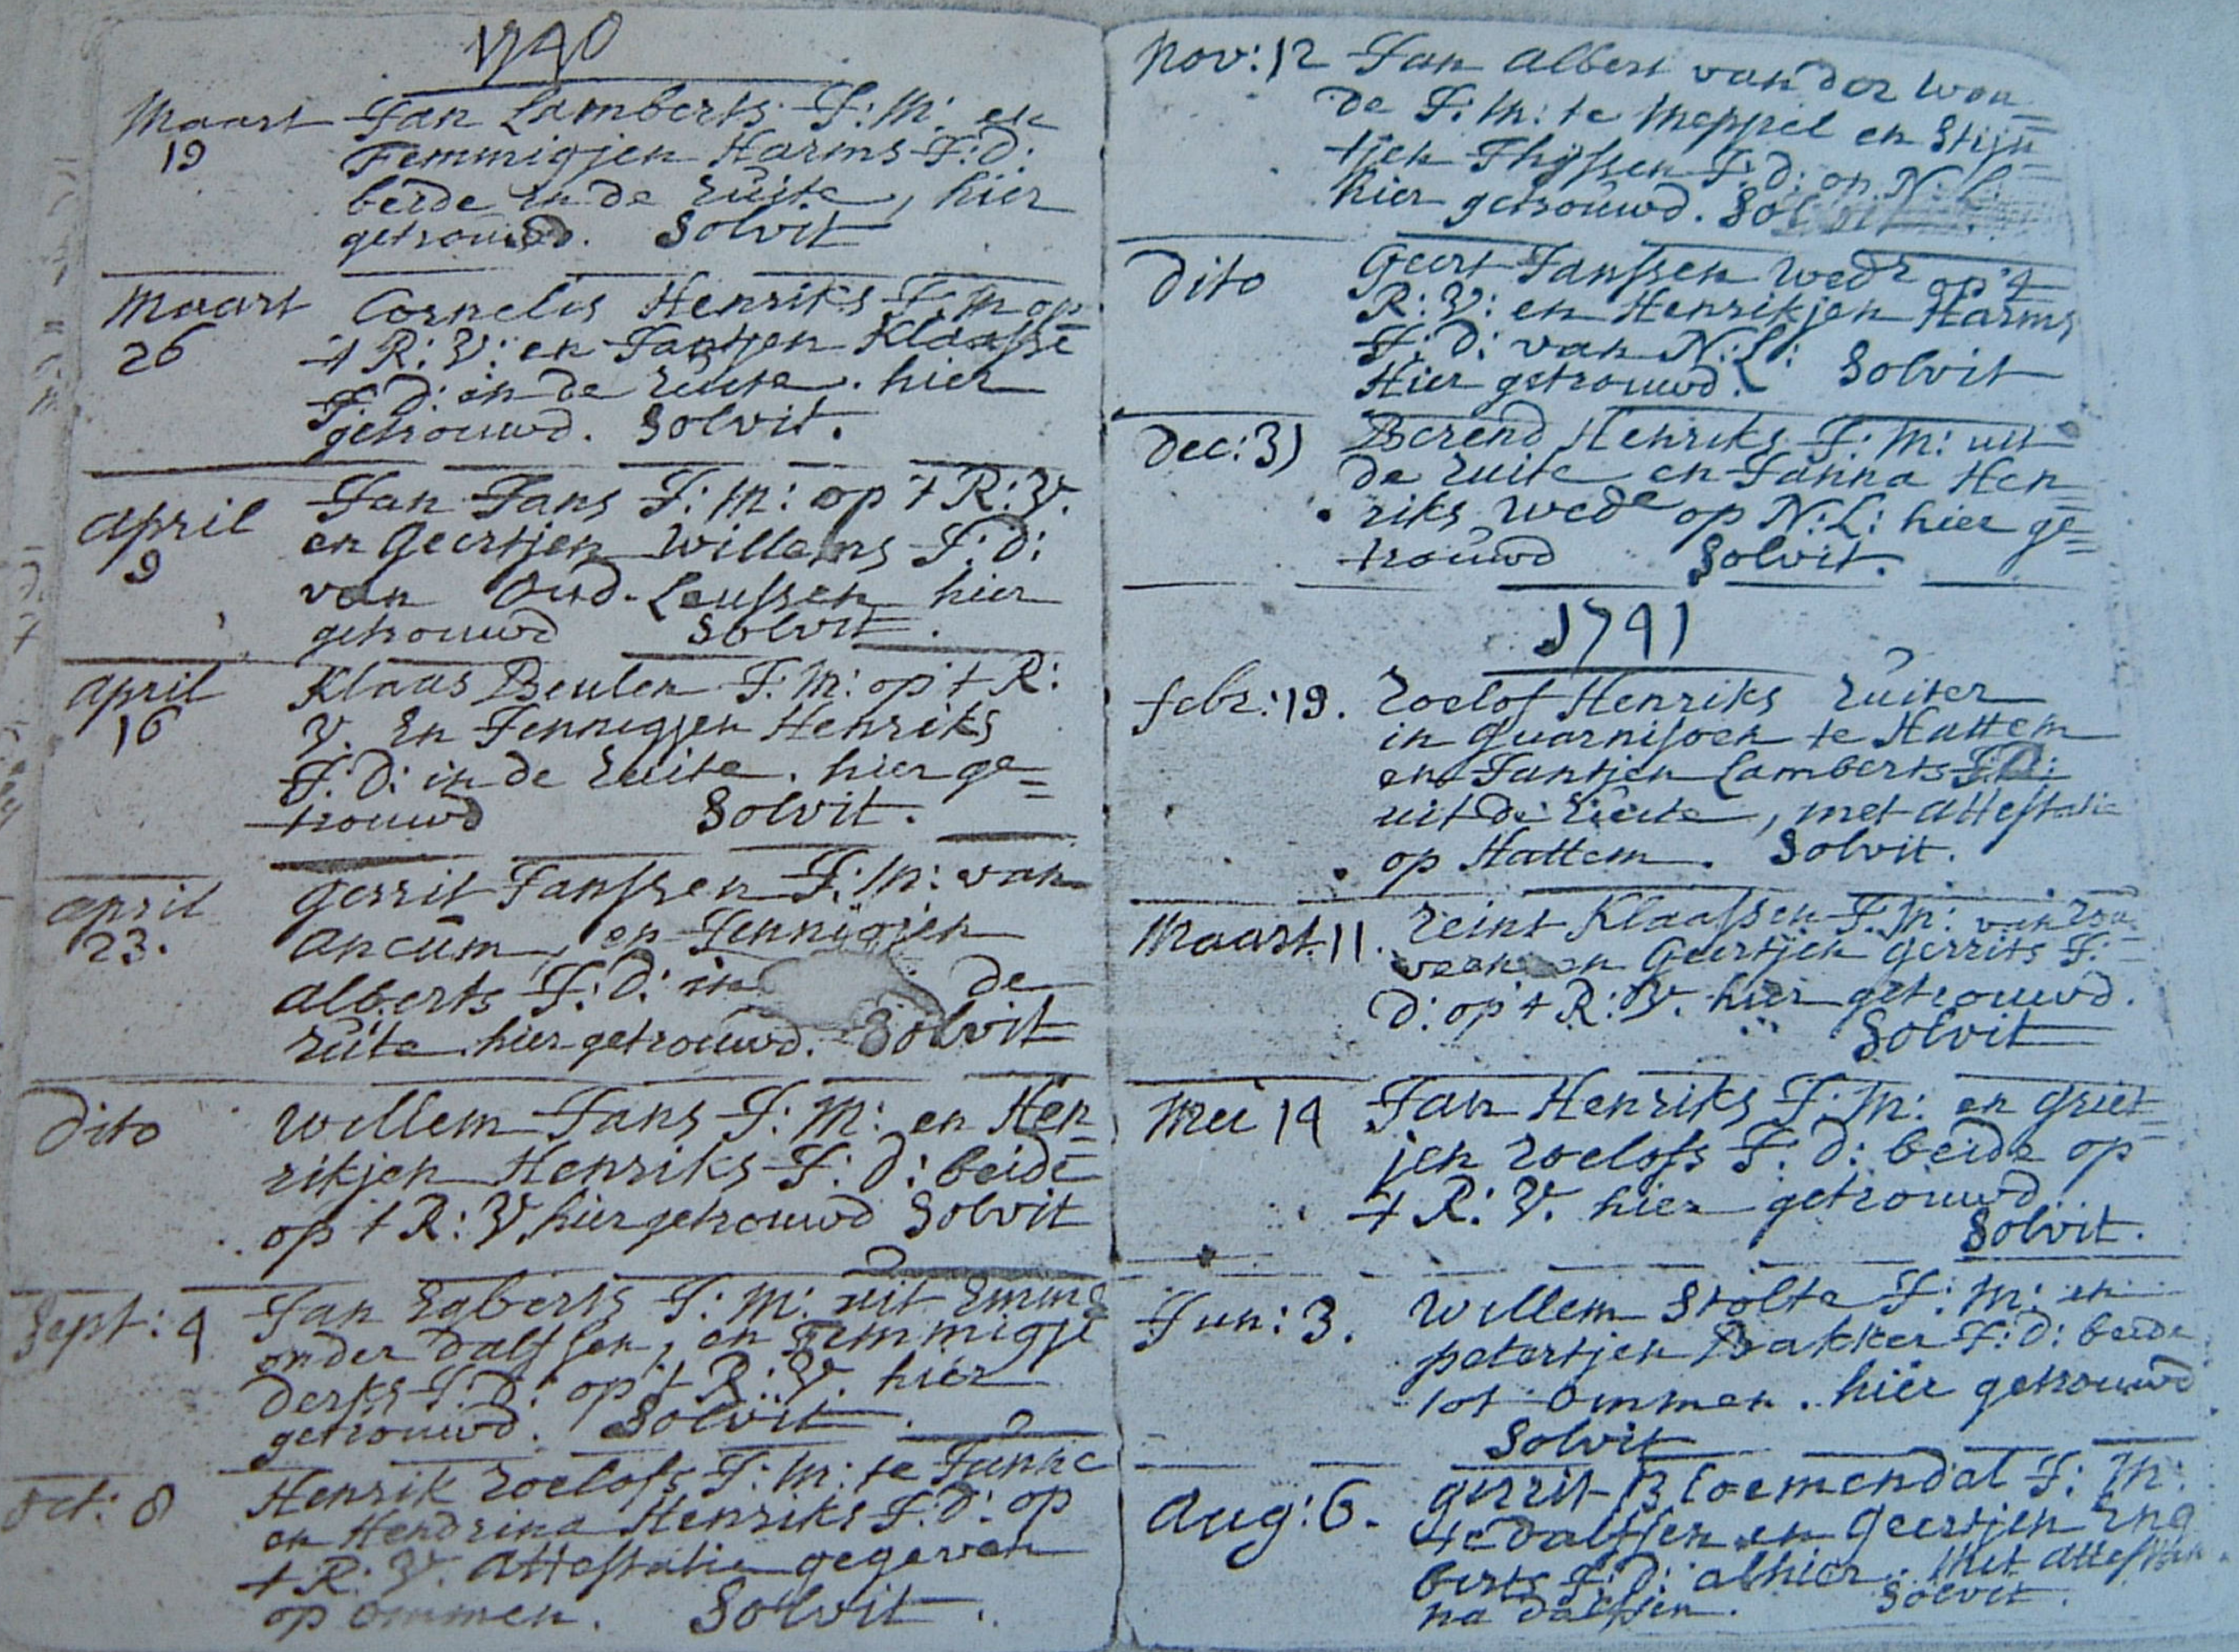 1740
Maart 19 Jan Lamberts J: M: en
Femmigjen Harms J: D:
beide in de Ruite, hier
getrouwd. Solvit
Maart 26 Cornelis Henriks J: M op
't R: V: en Jantjen Klaassē
J: D: in de Ruite. hier
getrouwd. Solvit.
April 9 Jan Jans J: M: op 't R: V.
en Geertjen Willems J: D:
van Oud-Leussen hier
getrouwd Solvit.
April 16 Klaas Beulen J: M: op 't R:
V. En Jennigjen Henriks
J: D: in de Ruite. hier ge=
trouwd Solvit.
April 23. Gerrit Janssen J: M: van
Ancum, en Jennigjen
Alberts J: D: in de
Ruite hier getrouwd. Solvit
Dito Willem Jans J: M: en Hen=
rikjen Henriks J: D: beide
op 't R: V. hier getrouwd Solvit
Sept: 4 Jan Egberts J: M: uit Emme
onder Dalfsen, en Femmigje
Derks J: D: op 't R: V. hier
getrouwd. Solvit.
Oct: 8 Henrik Roelofs J: M: te Junne
en Hendrina Henriks J: D: op
't R: V. Attestatie gegeven
op Ommen. Solvit.
Nov: 12 Jan Albert van der Wou=
de J: M: te Meppel en Stijn=
tjen Thijssen J: D: op N: L:
hier getrouwd. Solvit
Dito Geert Janssen Wedr op 't
R: V: en Henrikjen Harms
J: D: van N: L:
Hier getrouwd. Solvit
Dec: 31 Berend Henriks J: M: uit
de Ruite en Janna Hen=
riks Wede op N: L: hier ge=
trouwd Solvit.
1741
Febr: 19. Roelof Henriks Ruiter
in Guarnisoen te Hattem
en Jantjen Lamberts J: D:
uit de Ruite, met Attestatie
op Hattem. Solvit.
Maart. 11. Reint Klaassen J: M: van Rou=
veen en Geertjen Gerrits J:
D: op 't R: V. hier getrouwd.
Solvit
Mei 14 Jan Henriks J: M: en Griet=
jen Roelofs J: D: beide op
't R: V. hier getrouwd.
Solvit.
Jun: 3. Willem Stolte J: M: en
Petertjen Bakker J: D: beide
tot Ommen. hier getrouwd
Solvit
Aug: 6. Gerrit Bloemendal J: M:
te Dalfsen en Geertjen Eng
berts J: D: alhier. Met Attestatie
na Dalfsen. Solvit.